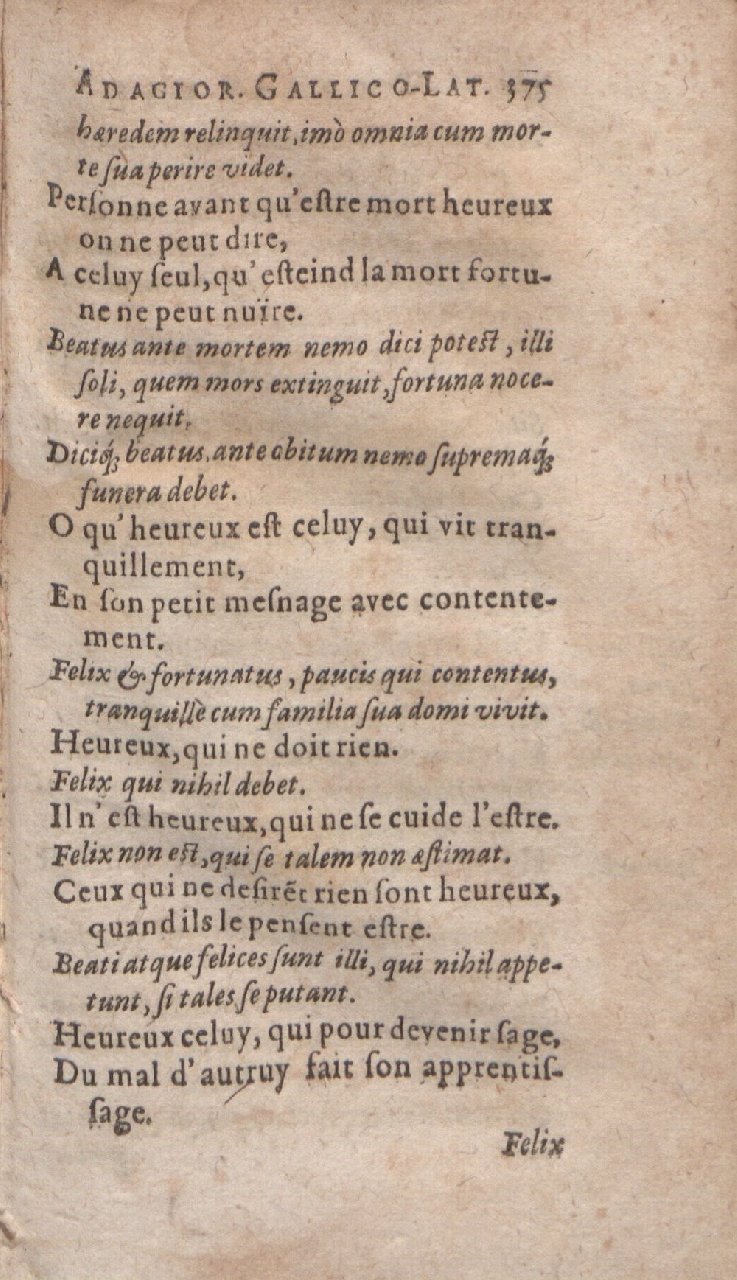 ADAGIOR. GALLICO-LAT. 375
hæredem relinquit, imò omnia cum mor-
te sua perire videt.
Personne avant qu'eſtre mort heureux
on ne peut dire,
A celuy ſeul, qu'eſteind la mort fortu-
ne ne peut nuïre.
Beatus ante mortem nemo dici poteſt, illi
ſoli, quem mors extinguit, fortuna noce-
re nequit.
Diciq́; beatus, ante obitum nemo ſupremaq́;
funera debet.
O qu'heureux eſt celuy, qui vit tran-
quillement,
En ſon petit meſnage avec contente-
ment.
Felix & fortunatus, paucis qui contentus,
tranquillè cum familia ſua domi vivit.
Heureux, qui ne doit rien.
Felix qui nihil debet.
Il n'eſt heureux, qui ne ſe cuide l'eſtre.
Felix non eſt, qui ſe talem non æſtimat.
Ceux qui ne deſirẽt rien ſont heureux,
quand ils le penſent eſtre.
Beati atque felices ſunt illi, qui nihil appe-
tunt, ſi tales ſe putant.
Heureux celuy, qui pour devenir ſage,
Du mal d'autruy fait ſon apprentiſ-
ſage.
Felix